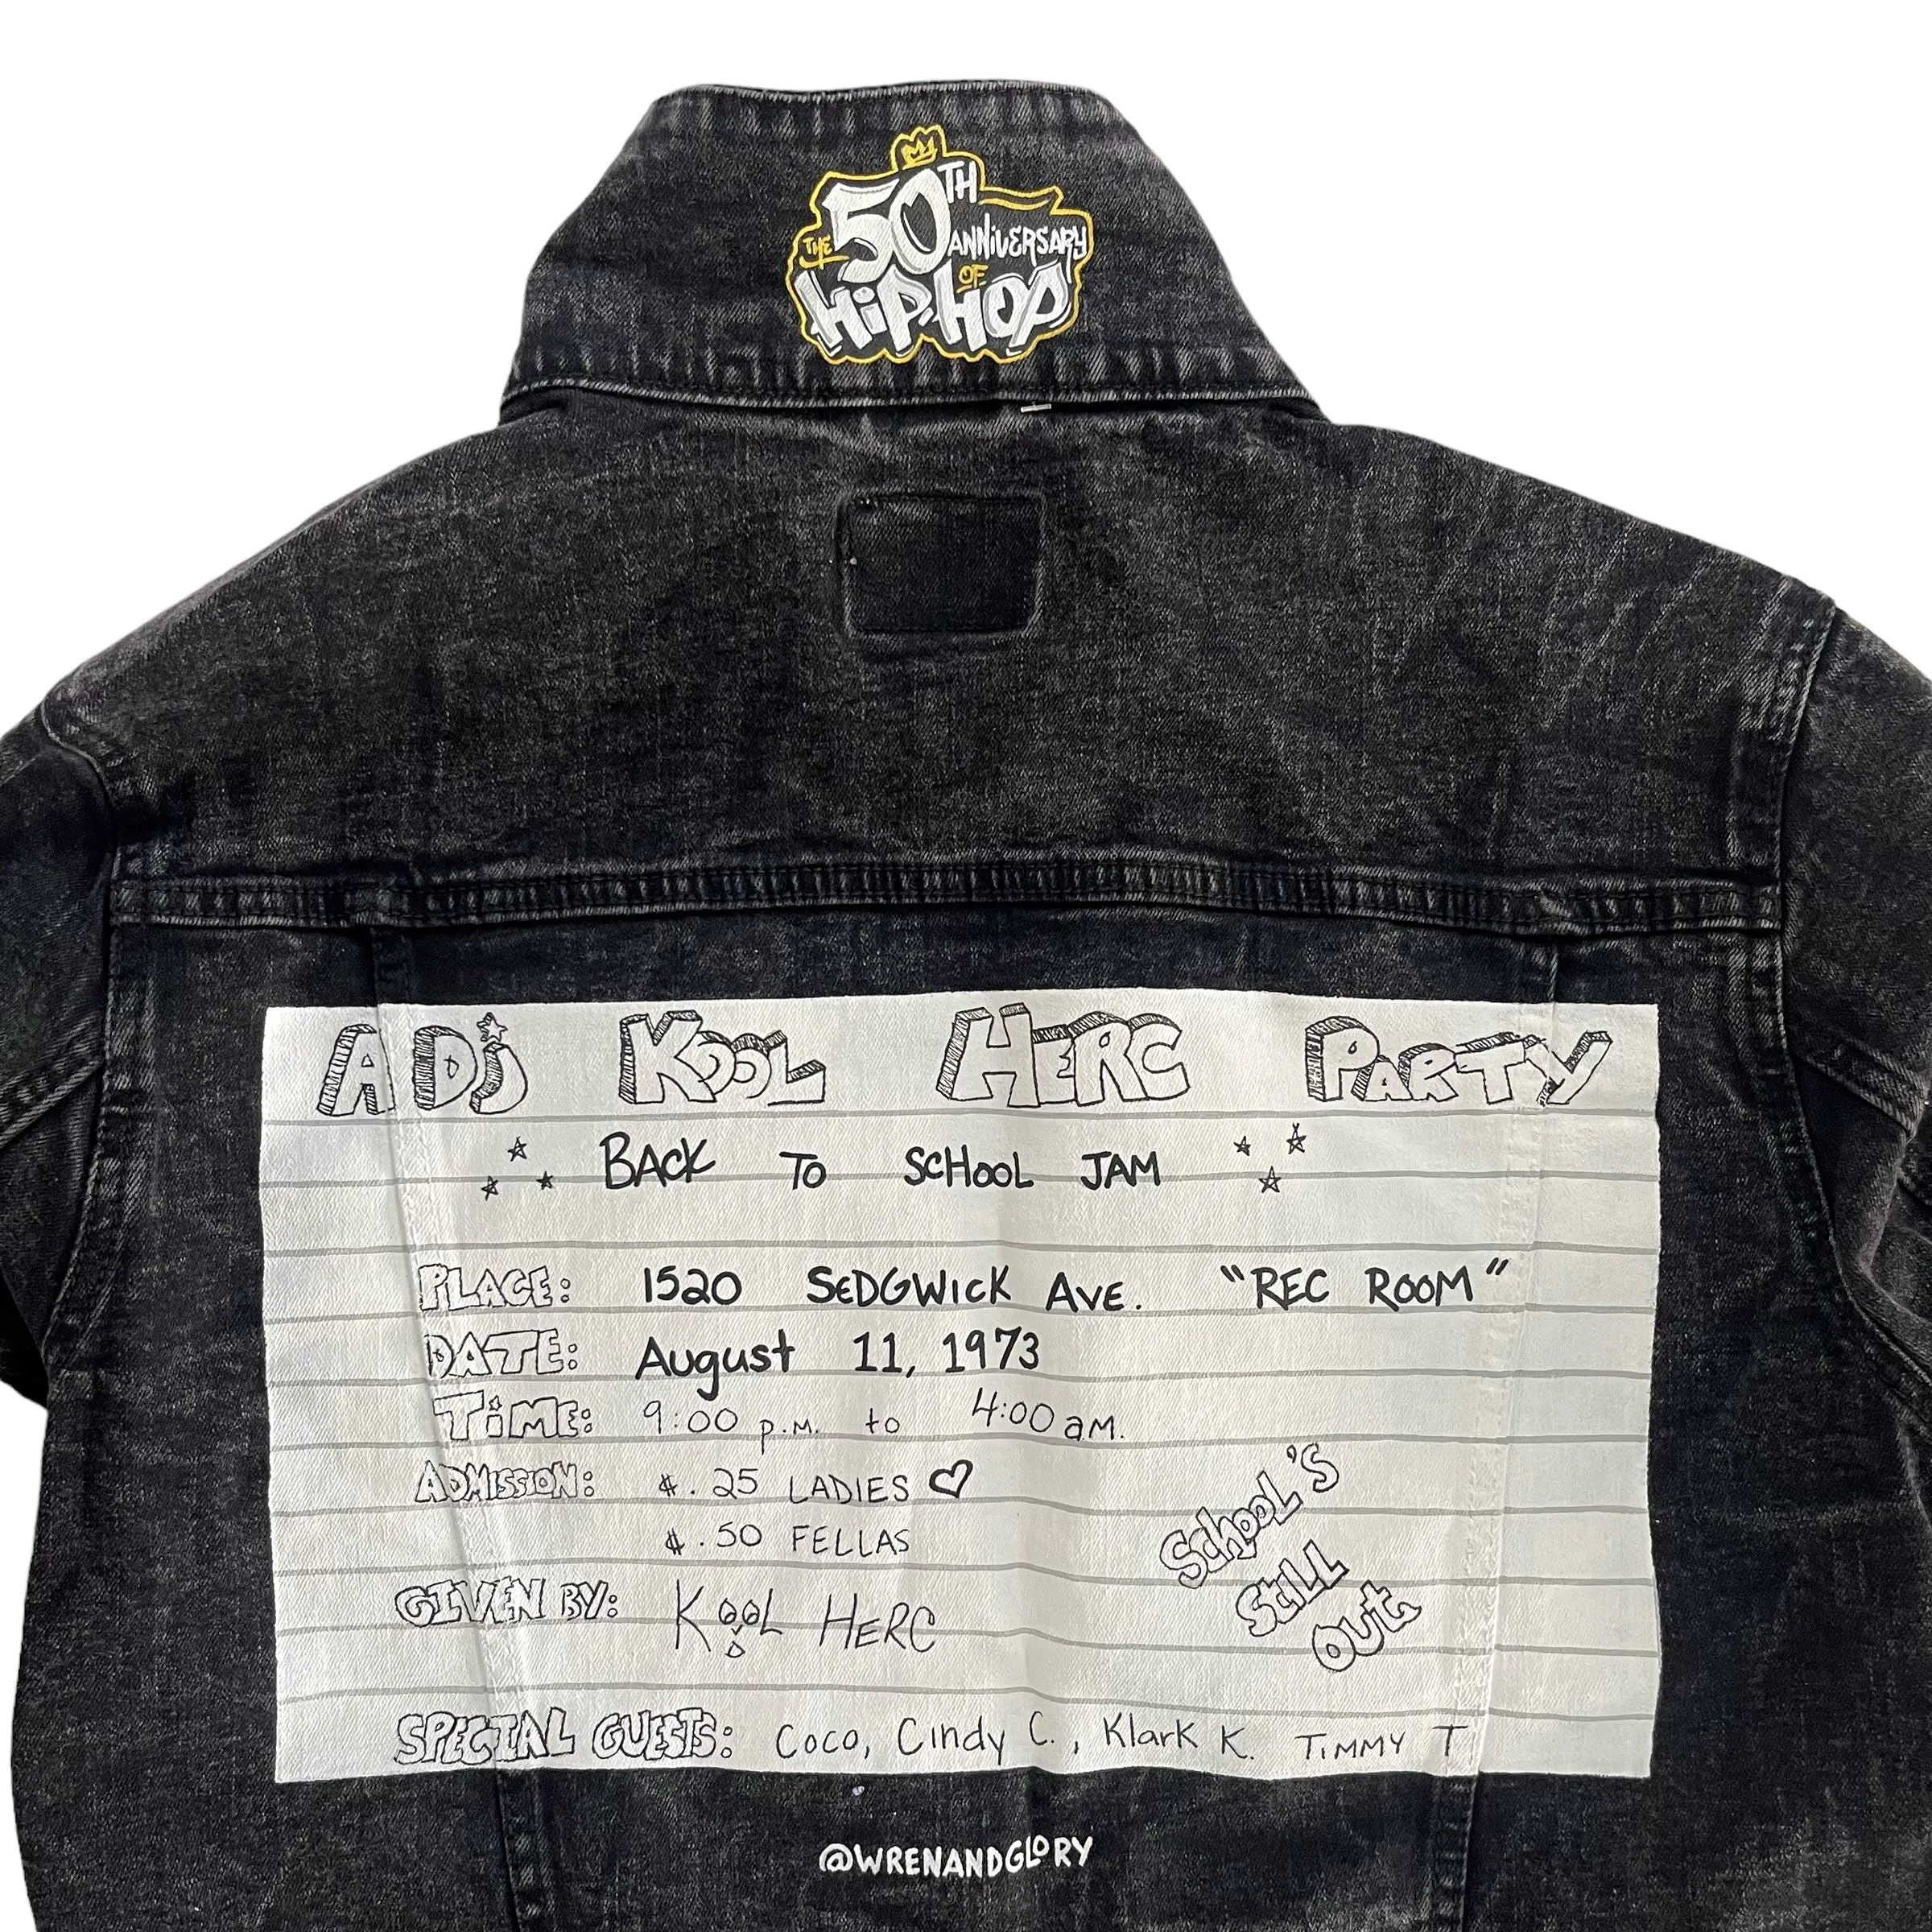 THE 50TH ANNIVERSARY
OF
HIP-HOP
A DJ KOOL HERC PARTY
BACK TO SCHOOL JAM
PLACE: 1520 SEDGWICK AVE. "REC ROOM"
DATE: August 11, 1973
TiME: 9:00 p.m. to 4:00 a.m.
ADMISSION: $.25 LADIES
$.50 FELLAS
GIVEN BY: KOOL HERC
SCHOOL'S
STILL
OUT
SPECIAL GUESTS: Coco, Cindy C., Klark K. TiMMY T
@WRENANDGLORY